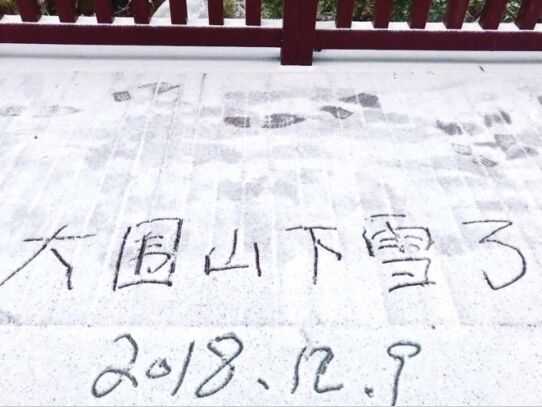 大圓山下雪了
2018.12.9